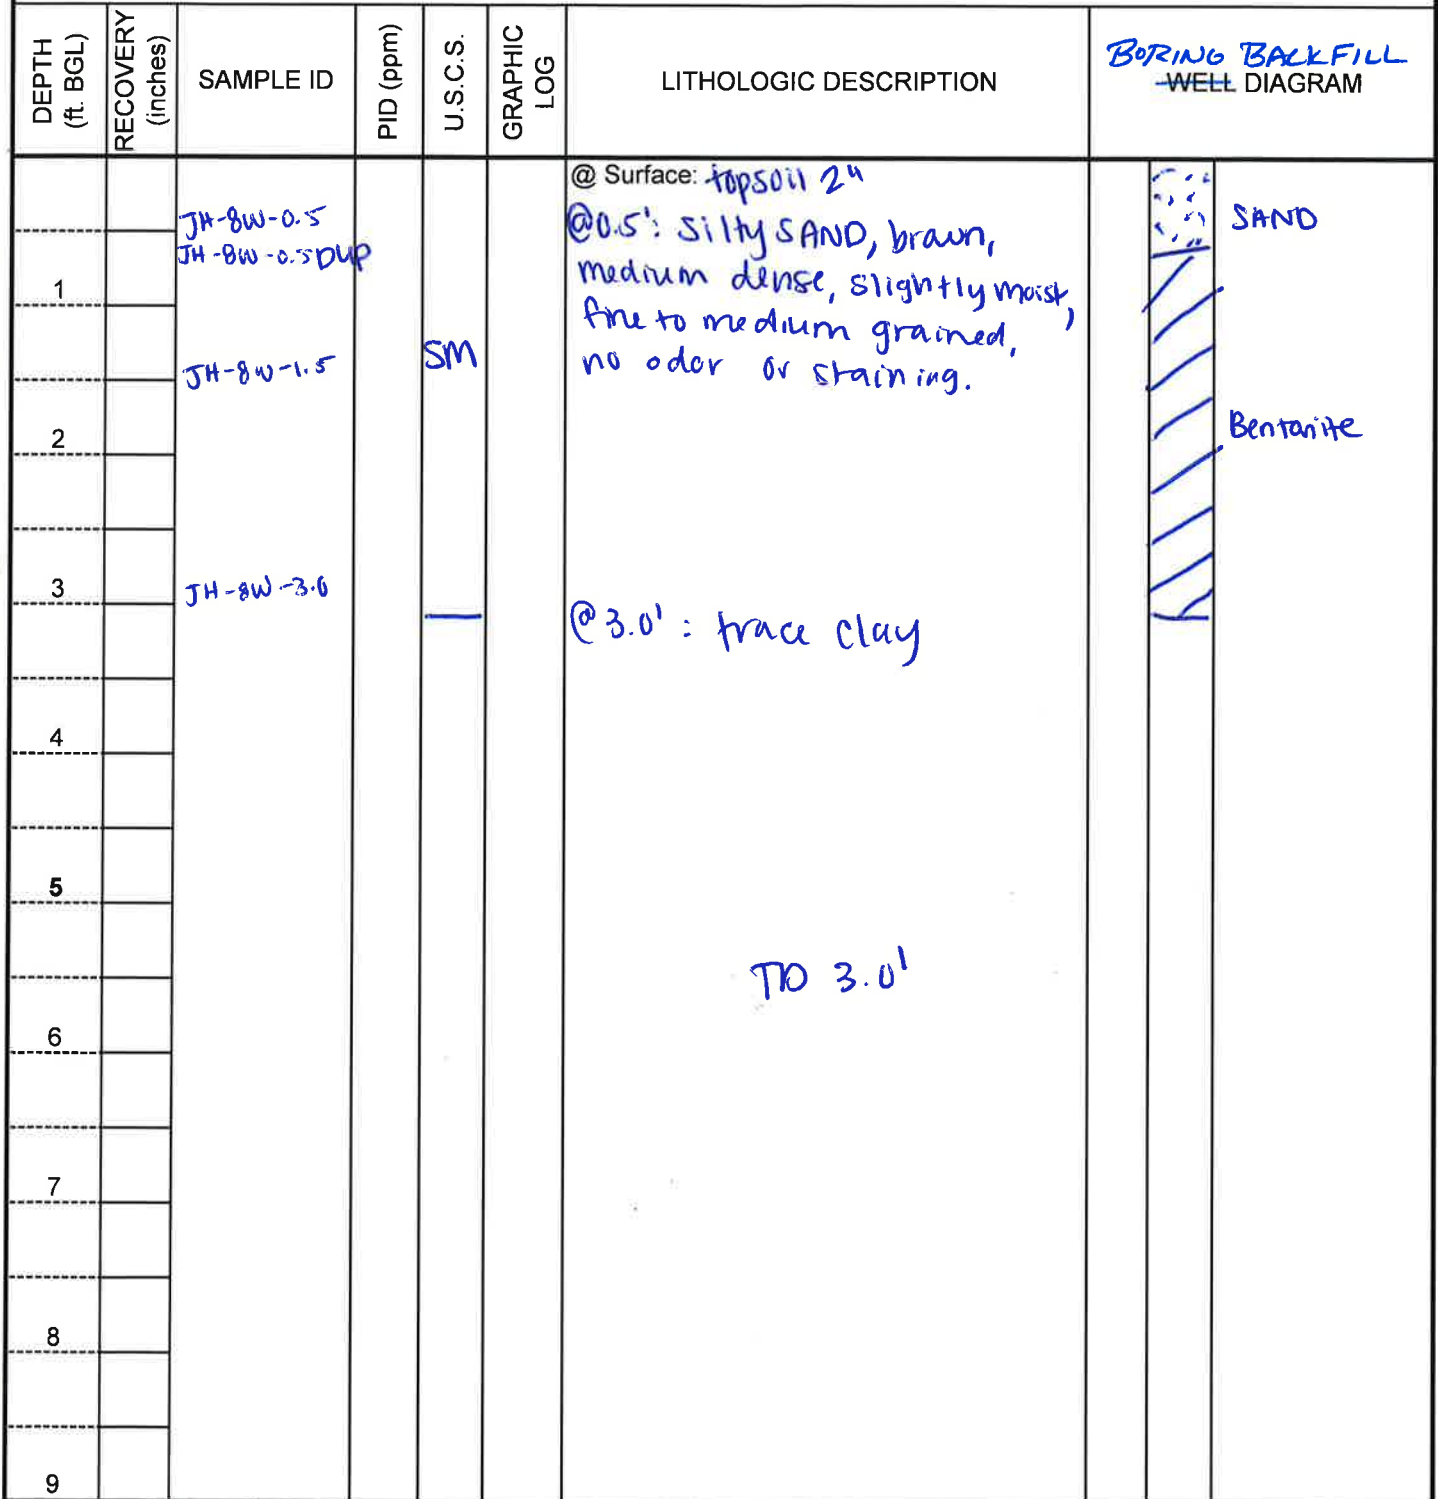 DEPTH
(ft. BGL)
RECOVERY
(inches)
SAMPLE ID
PID (ppm)
U.S.C.S.
GRAPHIC
LOG
LITHOLOGIC DESCRIPTION
BORING BACKFILL
WELL DIAGRAM
@ Surface: topsoil 2"
JH-8W-0.5
@0.5': Silty SAND, brown,
SAND
JH-8W-0.5DUP
medium dense, slightly moist,
1
fine to medium grained,
SM
no odor or staining.
JH-8W-1.5
2
Bentonite
3
JH-8W-3.0
@ 3.0': trace clay
4
5
TD 3.0'
6
7
8
9